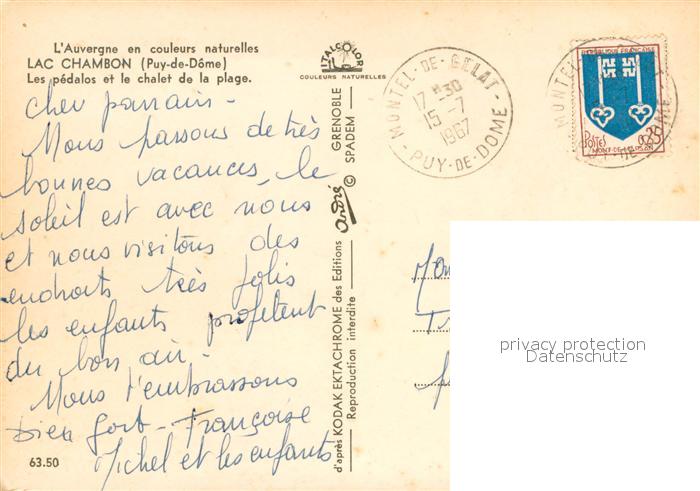 L'Auvergne en couleurs naturelles
LAC CHAMBON (Puy-de-Dôme)
Les pédalos et le chalet de la plage.
ITALCOLOR
COULEURS NATURELLES
cher parrain -
Nous passons de très
bonnes vacances, le
soleil est avec nous
et nous visitons des
endroits très jolis
les enfants profitent
du bon air -
Nous t'embrassons
bien fort - Françoise
Michel et les enfants
63.50
d'après KODAK EKTACHROME des Editions André © GRENOBLE
Reproduction interdite SPADEM
MONTEL-DE-GELAT
17 H 30
15-7
1967
PUY-DE-DOME
REPUBLIQUE FRANÇAISE
POSTES 0,25
MONT-DE-MARSAN
MONTEL
privacy protection
Datenschutz